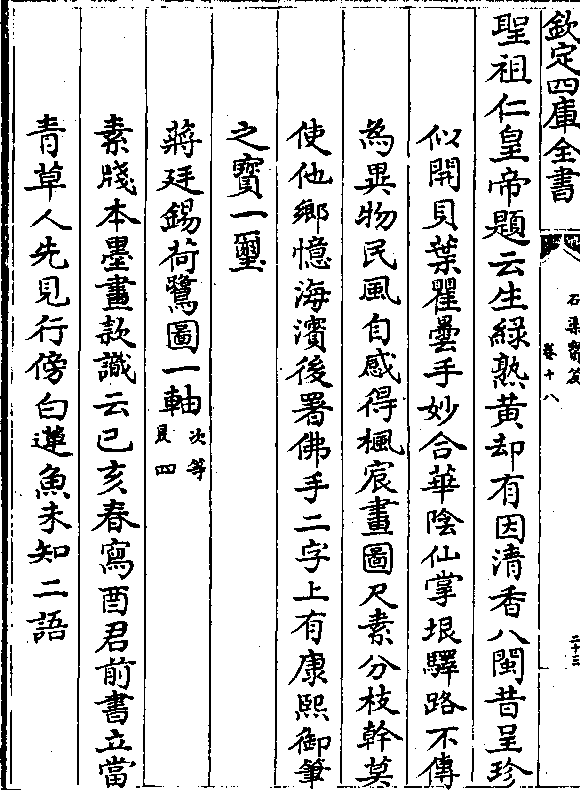 欽定四庫全書
石渠寶笈
卷十八
二十三
聖祖仁皇帝題云生綠熟黄却有因清香八閩昔呈珍
似開貝葉瞿曇手妙合華陰仙掌垠驛路不傳
為異物民風自感得楓宸畫圖尺素分枝幹莫
使他鄉憶海濱後署佛手二字上有康熙御筆
之寳一璽
蔣廷錫荷鷺圖一軸次等
晨四
素牋本墨畫款識云己亥春寫酉君前書立當
青草人先見行傍白蓮魚未知二語